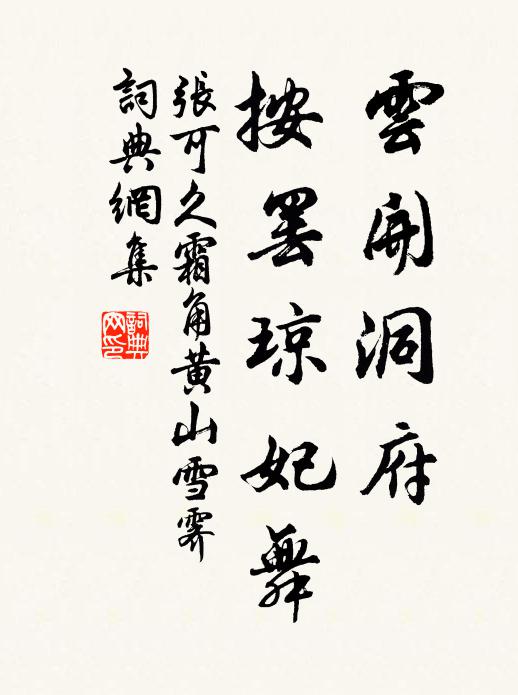 雲開洞府
按罷琼妃舞
張可久霜角黄山雪霽
詞典網集
詞典网印